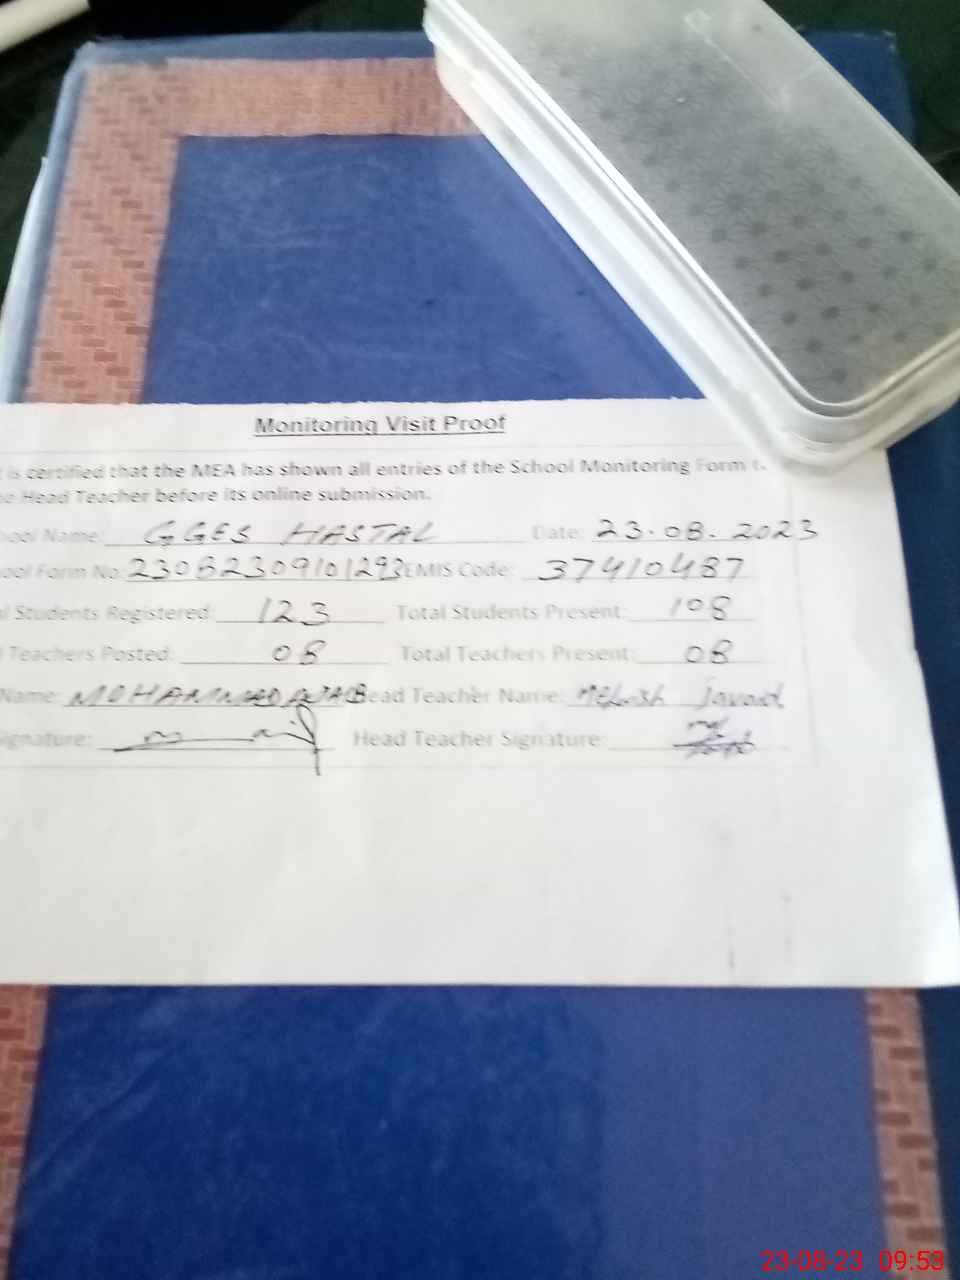 Monitoring Visit Proof
is certified that the MEA has shown all entries of the School Monitoring Form
Head Teacher before its online submission.
Name: GGES HASTAL Date: 23.08.2023
Form No: EMIS Code: 37410487
Students Registered: 123 Total Students Present: 108
Teachers Posted: 08 Total Teachers Present: 08
Name: MOHAMMAD Head Teacher Name: Javaid
Signature: Head Teacher Signature:
23-08-23 09:53